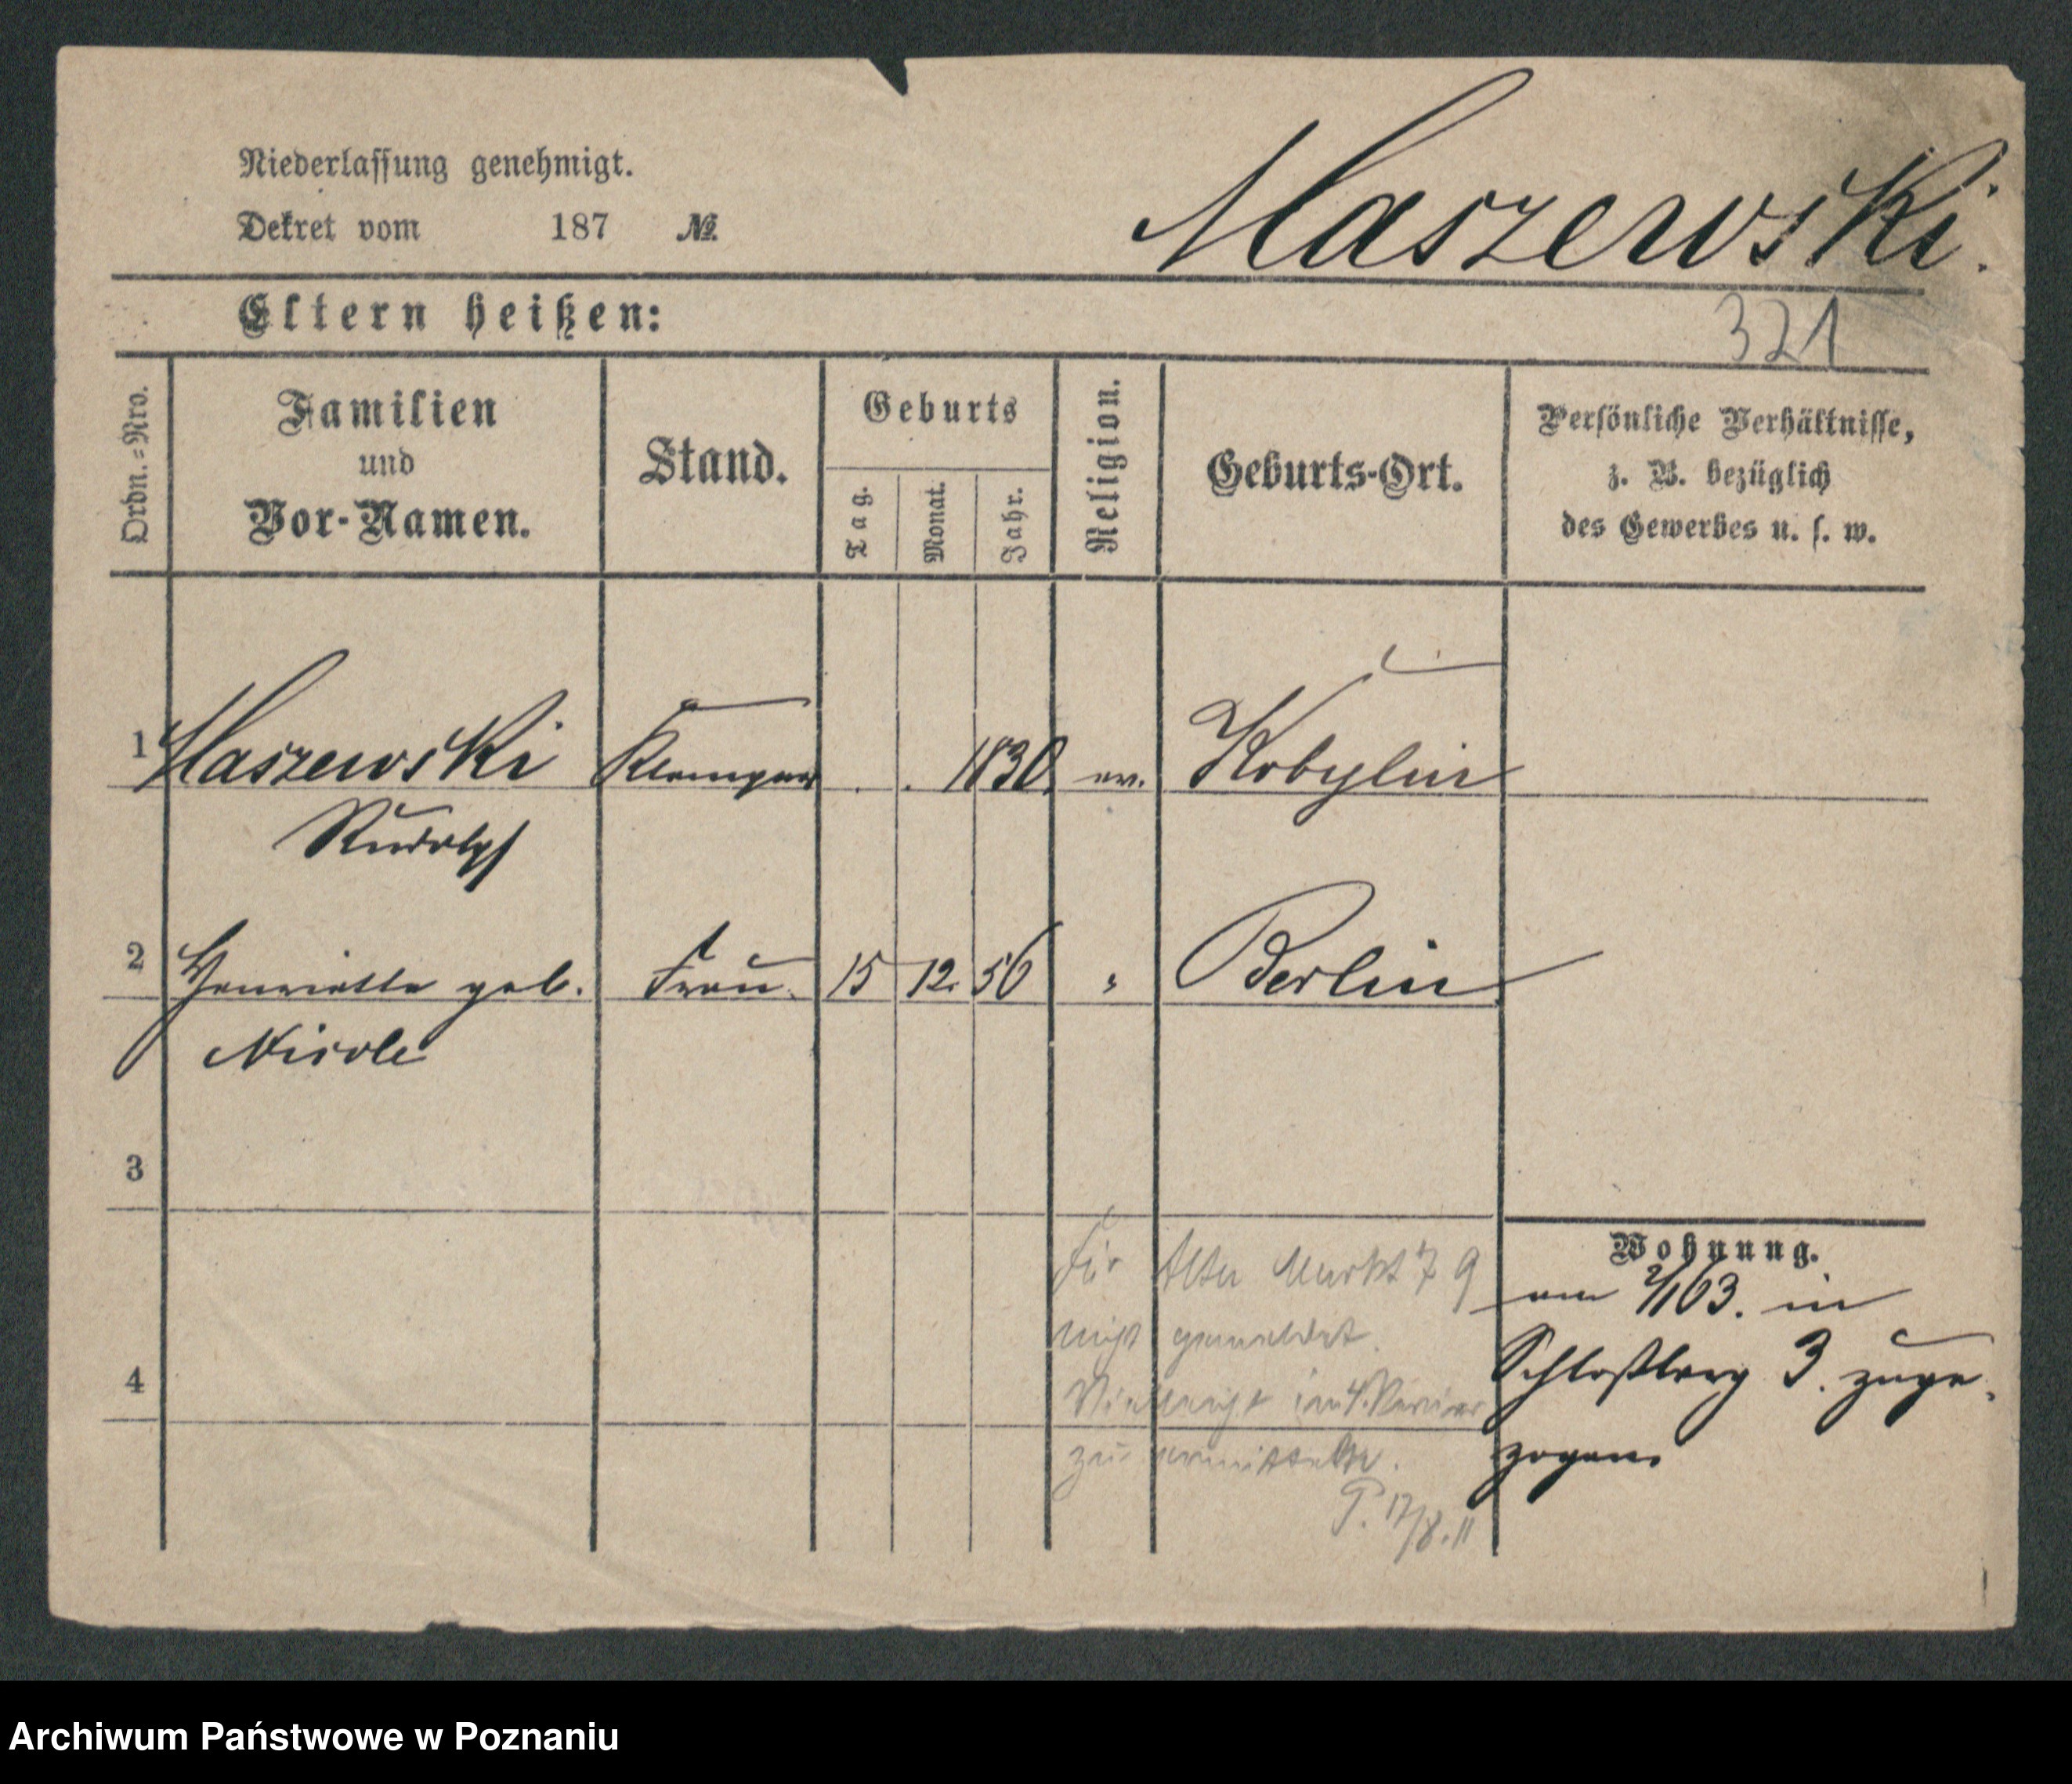 Niederlassung genehmigt.
Maszewski.
Dekret vom 187 №.
Eltern heißen:
321
Ordn.=Nro.
Familien
und
Vor-Namen.
Stand.
Geburts
Tag.
Monat.
Jahr.
Religion.
Geburts-Ort.
Persönliche Verhältnisse,
z. B. bezüglich
des Gewerbes u. s. w.
1 Maszewski Klempner . . 1830. ev. Kobylin
Rudolph
2 Henriette geb. Frau. 15 12. 56 " Berlin
Nicole
3
Wohnung.
Für Alter Markt 79
nicht gemeldet.
Vielleicht im 4. Revier
zu ermitteln.
P. 17/8.11
am 2/1 03. in
Schloßberg 3. zuge-
zogen.
4
Archiwum Państwowe w Poznaniu